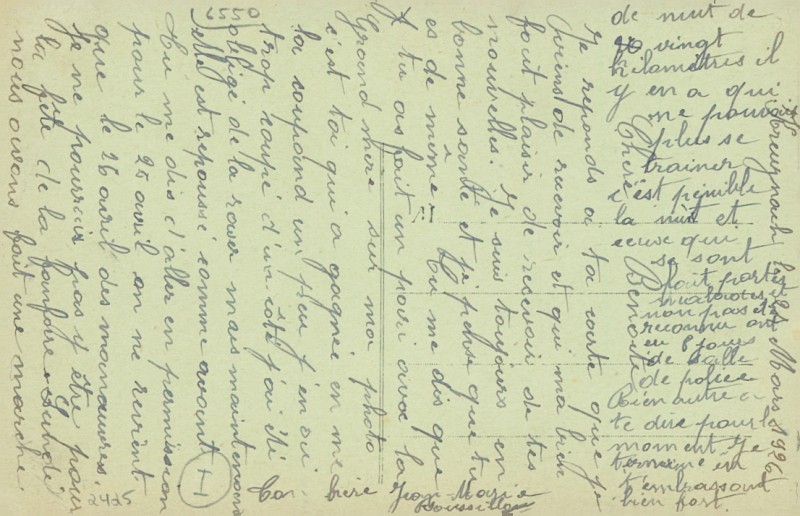 Mars 1926
Chère Benoite
Je reponds a ta carte que je
viens de recevoir et qui ma bien
fait plaisir de recevoir de tes
nouvelles. Je suis toujours en
bonne santé et je pense que tu
es de même. Tu me dis que
tu as fait un pari avec la
Grand mère sur ma photo
c'est toi qui a gagnée en me
la coupand un peu j'en ai
trop coupé d'un coté j'ai été
obligé de la raser mais maintenant
elle est repoussé comme avant
Tu me dis d'aller en permission
pour le 25 avril on ne revient
que le 26 avril des manœuvres.
Je ne pourrais pas y être pour
la fête de la fanfare. Samedi
nous avons fait une marche
de nuit de
vingt
kilomètres il
y en a qui
ne pouvait
plus se
trainer
c'est penible
la nuit et
ceux qui
se sont
fait porter
malades et
non pas été
reconnu ont
eu 8 jours
de salle
de police
Rien autre a
te dire pour le
moment. Je
termine en
t'embrassant
bien fort.
Ton frère Jean Marie
Roussillon
6550
2425